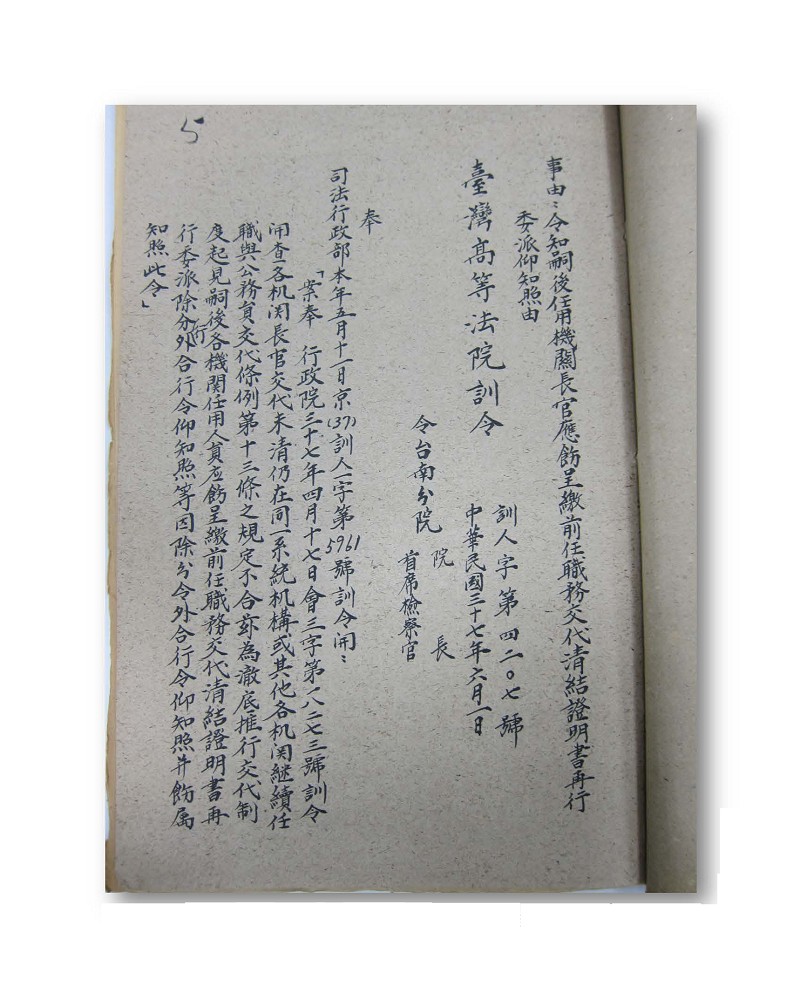 5
事由：令知嗣後任用機關長官應飭呈繳前任職務交代清結證明書再行
委派仰知照由
臺灣高等法院訓令
訓人字第四二〇七號
中華民國三十七年六月一日
令台南分院
院長
首席檢察官
奉
司法行政部本年五月十一日京(37)訓人一字第5961號訓令開：
「案奉　行政院三十七年四月十七日會三字第一八二七三號訓令
開查各机関長官交代未清仍在同一系統机構或其他各机関継續任
職與公務員交代條例第十三條之規定不合茲為澈底推行交代制
度起見嗣後各機関任用人員应飭呈繳前任職務交代清結證明書再
行委派除分行外合行令仰知照等因除分令外合行令仰知照并飭属
知照此令」